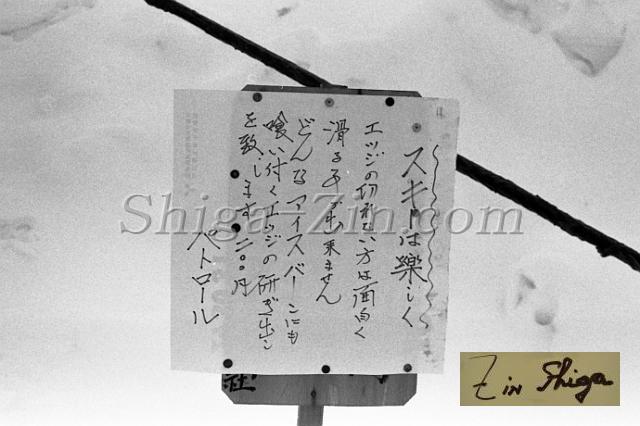 スキーは楽しく
エッジの切れない方は面白く
滑る事が出来ません
どんなアイスバーンにも
喰い付くエッジの研ぎ出し
を致します 二〇〇円
ペトロール
社
Shiga-Zin.com
Zin Shiga